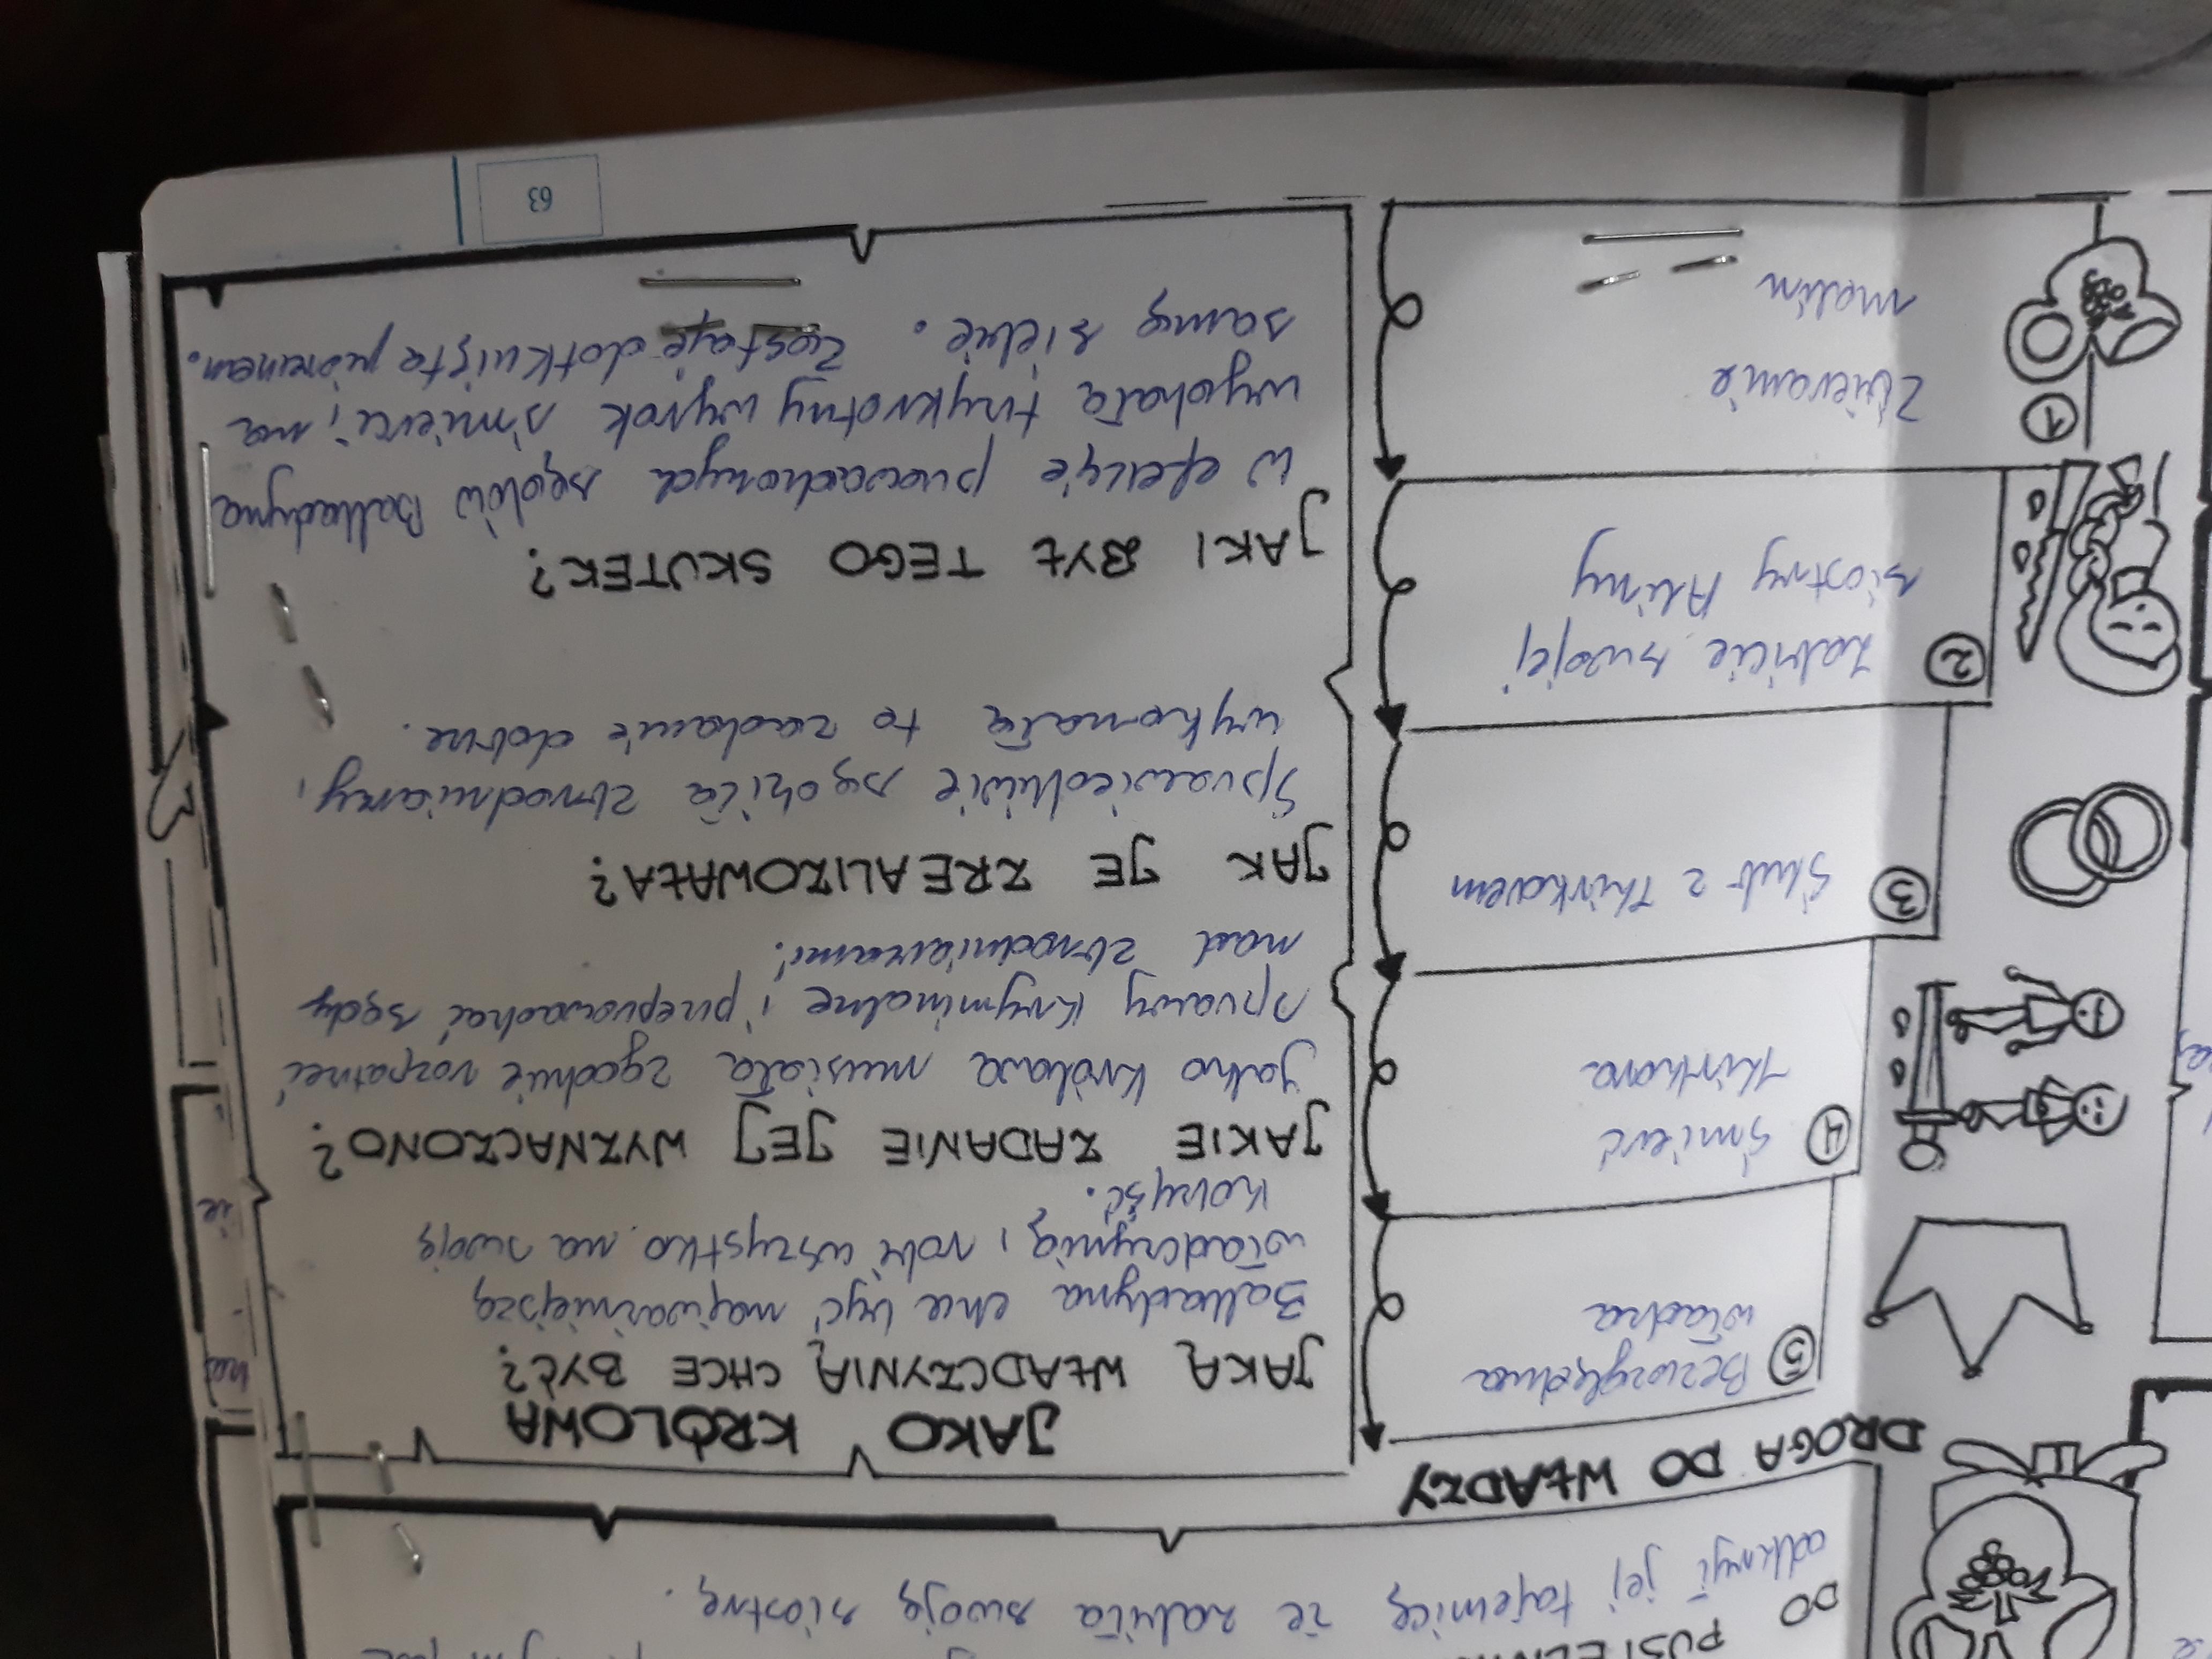 DO
odkrył jej tajemnicę że zabiła swoją siostrę.
DROGA DO WŁADZY
5
Bezwzględna
władza
4
Śmierć
Kirkora
3
Ślub z Kirkorem
2
zabicie swojej
siostry Aliny
1
Zbieranie
malin
JAKO KRÓLOWA
JAKĄ WŁADCZYNIĄ CHCE BYĆ?
Balladyna chce być najważniejszą
władczynią, robi wszystko na swoją
korzyść.
JAKIE ZADANIE JEJ WYZNACZONO?
jako królowa musiała zgodnie rozpatrzeć
sprawy kryminalne i przeprowadzać sądy
nad zbrodniarzami.
JAK JE ZREALIZOWAŁA?
Sprawiedliwie sądziła zbrodniarzy,
wykonała to zadanie dobrze.
JAKI BYŁ TEGO SKUTEK?
W efekcie prowadzonych sądów Balladyna
wydała trzykrotny wyrok śmierci na
samą siebie. Zostaje dotknięta piorunem.
63